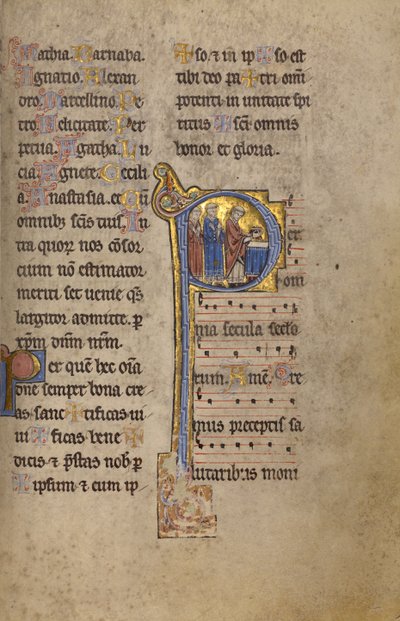 Mathia. Barnaba.
Ignatio. Alexan
dro. Marcellino. Pe
tro. Felicitate. Per
petua. Agatha. Lu
cia. Agnete. Cecili
a. Anastasia. et cū
omnibȝ scīs tuis. In
tra quoꝝ nos cōsor
cium nō estimator
meriti set uenie qs̄
largitor admitte. ꝑ
xp̄m dnm̄ nrm̄.
Per quē hec oīa
dn̄e semper bona cre
as sanc✝tificas ui
ui✝ficas bene✝
dicis ⁊ p̄stas nob̄ ꝑ
ipsum ⁊ cum ip
✝so. ⁊ in ip✝so est
tibi deo pa✝tri omī
potenti in unitate spi
ritus ✝ sc̄i omnis
honor et gloria.
Per
om
nia secula seclo
rum. Amē. Ore
mus preceptis sa
lutaribȝ moni